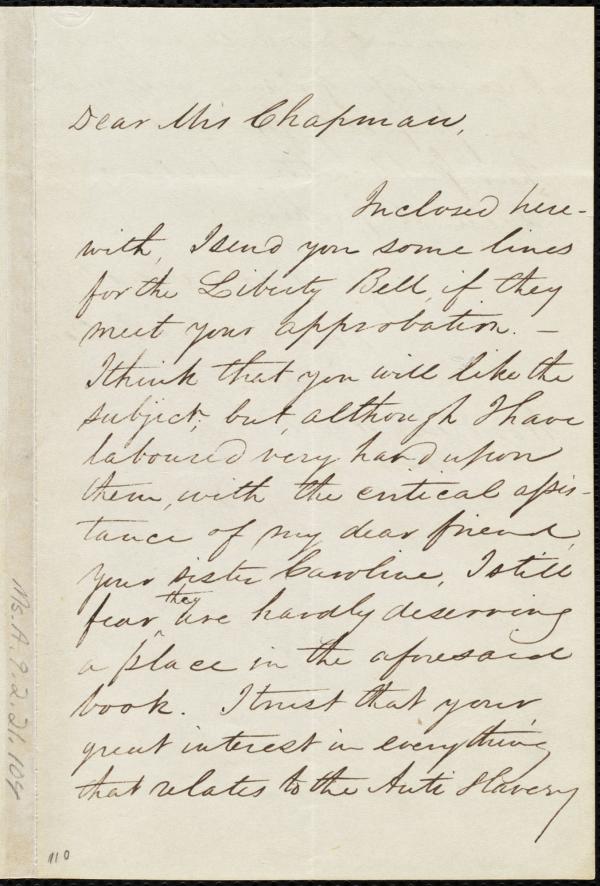 Dear Mrs Chapman,
Inclosed here-
with, I send you some lines
for the Liberty Bell, if they
meet your approbation. —
I think that you will like the
subject; but, although I have
laboured very hard upon
them, with the critical assis-
tance of my dear friend,
your sister Caroline, I still
fear they are hardly deserving
a place in the aforesaid
book. I trust that your
great interest in everything
that relates to the Anti Slavery
Ms.A.9.2.21.104
110